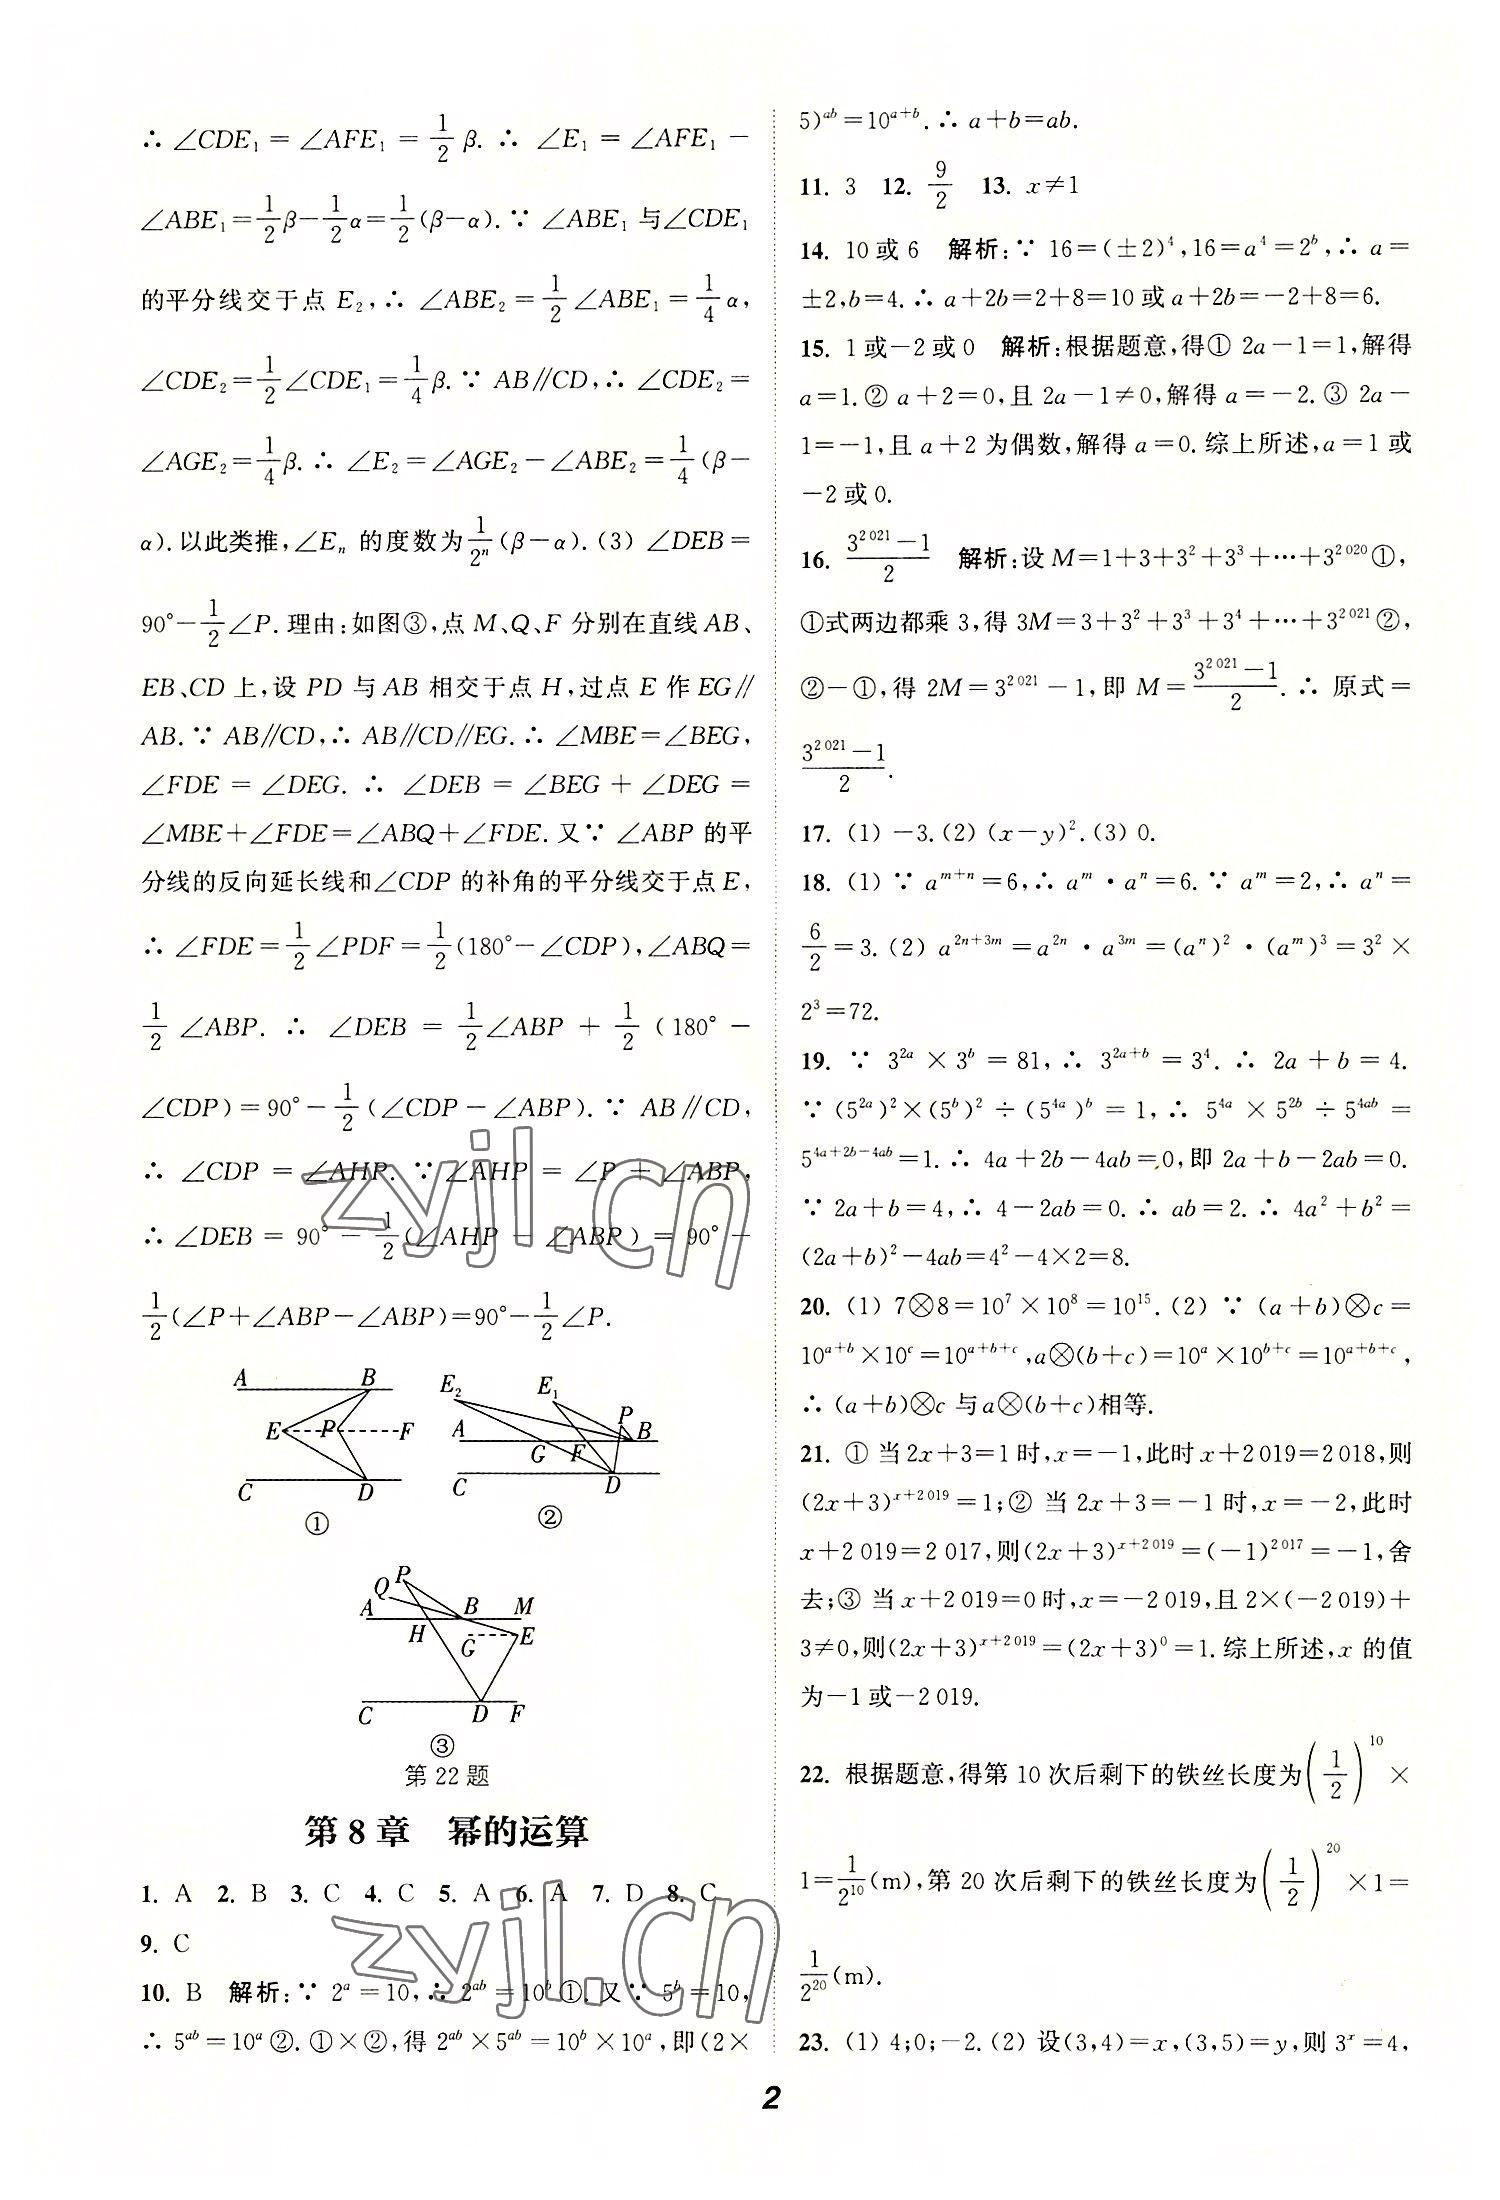 ∴ ∠CDE₁ = ∠AFE₁ = 1/2 β. ∴ ∠E₁ = ∠AFE₁ −
∠ABE₁ = 1/2 β − 1/2 α = 1/2 (β−α). ∵ ∠ABE₁ 与∠CDE₁
的平分线交于点 E₂, ∴ ∠ABE₂ = 1/2 ∠ABE₁ = 1/4 α,
∠CDE₂ = 1/2 ∠CDE₁ = 1/4 β. ∵ AB∥CD, ∴ ∠CDE₂ =
∠AGE₂ = 1/4 β. ∴ ∠E₂ = ∠AGE₂ − ∠ABE₂ = 1/4 (β−
α). 以此类推, ∠Eₙ 的度数为 1/2ⁿ (β−α). (3) ∠DEB =
90° − 1/2 ∠P. 理由:如图③,点 M、Q、F 分别在直线 AB、
EB、CD 上,设 PD 与 AB 相交于点 H,过点 E 作 EG∥
AB. ∵ AB∥CD, ∴ AB∥CD∥EG. ∴ ∠MBE=∠BEG,
∠FDE = ∠DEG. ∴ ∠DEB = ∠BEG + ∠DEG =
∠MBE+∠FDE=∠ABQ+∠FDE. 又∵ ∠ABP 的平
分线的反向延长线和∠CDP 的补角的平分线交于点 E,
∴ ∠FDE = 1/2 ∠PDF = 1/2 (180°−∠CDP), ∠ABQ =
1/2 ∠ABP. ∴ ∠DEB = 1/2 ∠ABP + 1/2 (180° −
∠CDP) = 90° − 1/2 (∠CDP − ∠ABP). ∵ AB∥CD,
∴ ∠CDP = ∠AHP. ∵ ∠AHP = ∠P + ∠ABP,
∴ ∠DEB = 90° − 1/2 (∠AHP − ∠ABP) = 90° −
1/2 (∠P+∠ABP−∠ABP) = 90° − 1/2 ∠P.
A B E P F C D
①
E₂ E₁ P A B G F C D
②
P Q A B M H G E C D F
③
第 22 题
第 8 章 幂的运算
1. A 2. B 3. C 4. C 5. A 6. A 7. D 8. C
9. C
10. B 解析:∵ 2^a=10, ∴ 2^(ab)=10^b ①. 又∵ 5^b=10,
∴ 5^(ab)=10^a ②. ①×②,得 2^(ab)×5^(ab)=10^b×10^a,即(2×
5)^(ab)=10^(a+b). ∴ a+b=ab.
11. 3 12. 9/2 13. x≠1
14. 10或6 解析:∵ 16=(±2)⁴,16=a⁴=2^b, ∴ a=
±2,b=4. ∴ a+2b=2+8=10 或 a+2b=−2+8=6.
15. 1或−2或0 解析:根据题意,得① 2a−1=1,解得
a=1. ② a+2=0,且 2a−1≠0,解得 a=−2. ③ 2a−
1=−1,且 a+2 为偶数,解得 a=0. 综上所述,a=1 或
−2或0.
16. (3^2 021 −1)/2 解析:设 M=1+3+3²+3³+⋯+3^2 020 ①,
①式两边都乘 3,得 3M=3+3²+3³+3⁴+⋯+3^2 021 ②,
②−①,得 2M=3^2 021−1,即 M=(3^2 021−1)/2. ∴ 原式=
(3^2 021−1)/2.
17. (1) −3. (2) (x−y)². (3) 0.
18. (1) ∵ a^(m+n)=6, ∴ a^m·a^n=6. ∵ a^m=2, ∴ a^n=
6/2=3. (2) a^(2n+3m)=a^(2n)·a^(3m)=(a^n)²·(a^m)³=3²×
2³=72.
19. ∵ 3^(2a)×3^b=81, ∴ 3^(2a+b)=3⁴. ∴ 2a+b=4.
∵ (5^(2a))²×(5^b)²÷(5^(4a))^b=1, ∴ 5^(4a)×5^(2b)÷5^(4ab)=
5^(4a+2b−4ab)=1. ∴ 4a+2b−4ab=0,即 2a+b−2ab=0.
∵ 2a+b=4, ∴ 4−2ab=0. ∴ ab=2. ∴ 4a²+b²=
(2a+b)²−4ab=4²−4×2=8.
20. (1) 7⊗8=10⁷×10⁸=10¹⁵. (2) ∵ (a+b)⊗c=
10^(a+b)×10^c=10^(a+b+c),a⊗(b+c)=10^a×10^(b+c)=10^(a+b+c),
∴ (a+b)⊗c 与 a⊗(b+c)相等.
21. ① 当 2x+3=1 时,x=−1,此时 x+2 019=2 018,则
(2x+3)^(x+2 019)=1;② 当 2x+3=−1 时,x=−2,此时
x+2 019=2 017,则(2x+3)^(x+2 019)=(−1)^2 017=−1,舍
去;③ 当 x+2 019=0 时,x=−2 019,且 2×(−2 019)+
3≠0,则(2x+3)^(x+2 019)=(2x+3)⁰=1. 综上所述,x 的值
为−1 或−2 019.
22. 根据题意,得第 10 次后剩下的铁丝长度为(1/2)^10×
1=1/2^10(m),第 20 次后剩下的铁丝长度为(1/2)^20×1=
1/2^20(m).
23. (1) 4;0;−2. (2) 设(3,4)=x,(3,5)=y,则 3^x=4,
2
zyjl.cn
zyjl.cn